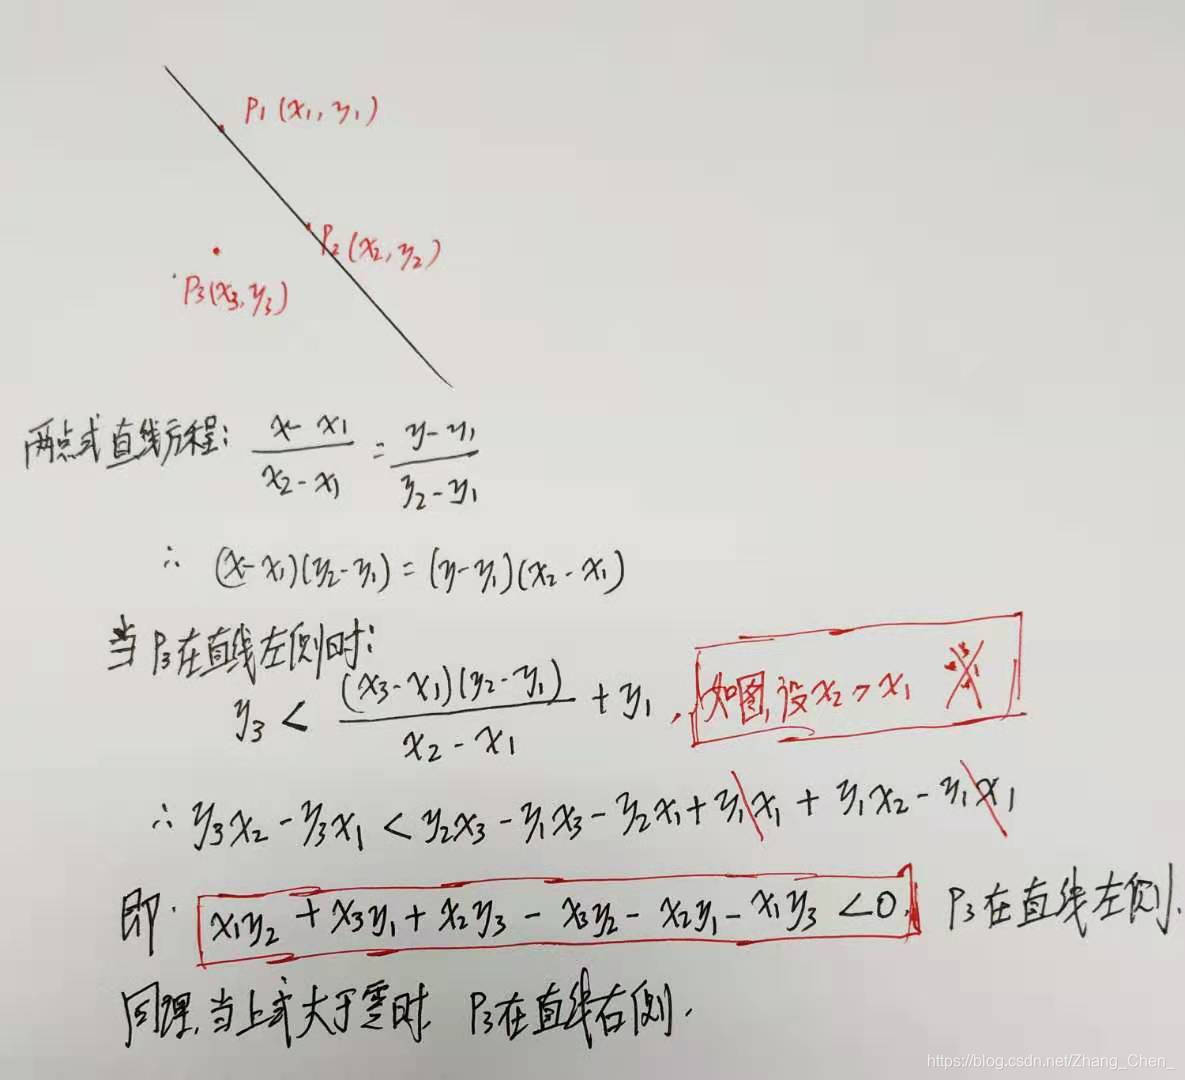 P₁(x₁, y₁)
P₂(x₂, y₂)
P₃(x₃, y₃)
两点式直线方程: (x-x₁)/(x₂-x₁) = (y-y₁)/(y₂-y₁)
∴ (x-x₁)(y₂-y₁) = (y-y₁)(x₂-x₁)
当P₃在直线左侧时:
y₃ < (x₃-x₁)(y₂-y₁)/(x₂-x₁) + y₁, 如图,设x₂>x₁
∴ y₃x₂ - y₃x₁ < y₂x₃ - y₁x₃ - y₂x₁ + y₁x₁ + y₁x₂ - y₁x₁
即. x₁y₂ + x₃y₁ + x₂y₃ - x₃y₂ - x₂y₁ - x₁y₃ <0. P₃在直线左侧.
同理,当上式大于零时 P₃在直线右侧.
https://blog.csdn.net/Zhang_Chen_